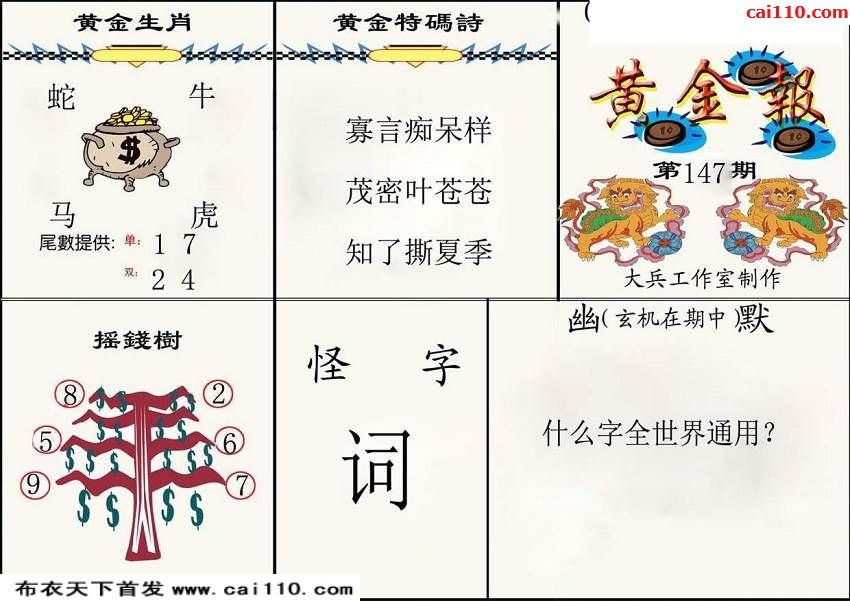 黄金生肖
蛇 牛
$
马 虎
尾數提供: 单: 1 7
双: 2 4
黄金特碼詩
寡言痴呆样
茂密叶苍苍
知了撕夏季
(
cai110.com
黄金報
第147期
大兵工作室制作
摇錢樹
8 2
5 6
9 7
怪 字
词
幽(玄机在期中)默
什么字全世界通用?
布衣天下首发 www.cai110.com